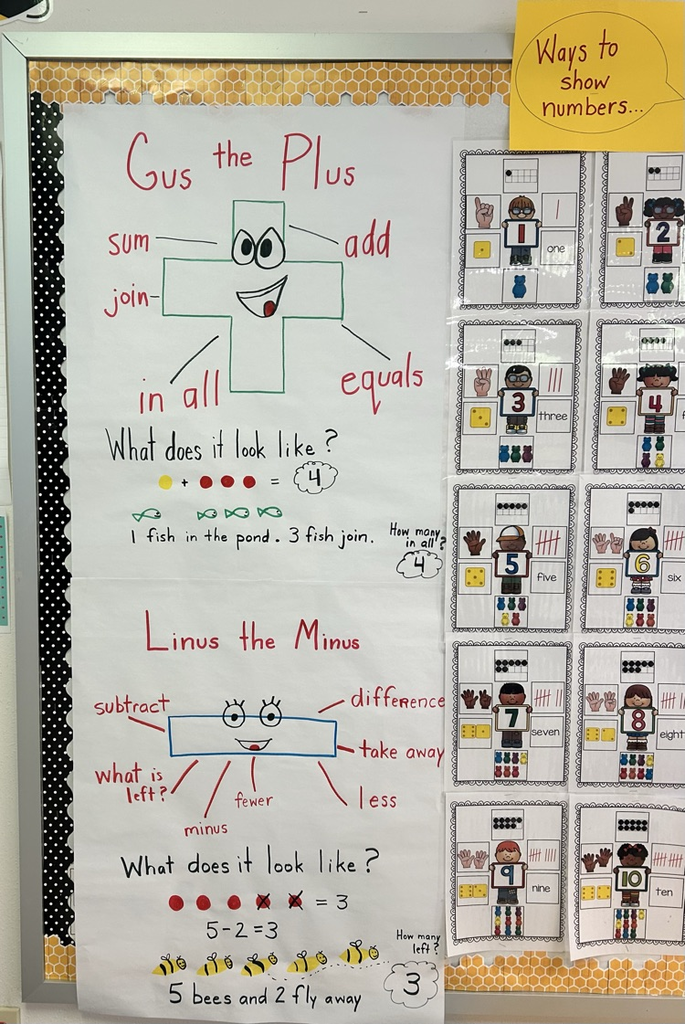 Ways to
show
numbers...
Gus the Plus
sum
add
join
in all
equals
What does it look like?
+ = 4
1 fish in the pond. 3 fish join.
How many
in all?
4
Linus the Minus
subtract
difference
take away
What is
left?
minus
fewer
less
What does it look like?
= 3
5-2=3
How many
left?
3
5 bees and 2 fly away
1
one
2
3
three
4
5
five
6
six
7
seven
8
eight
9
nine
10
ten